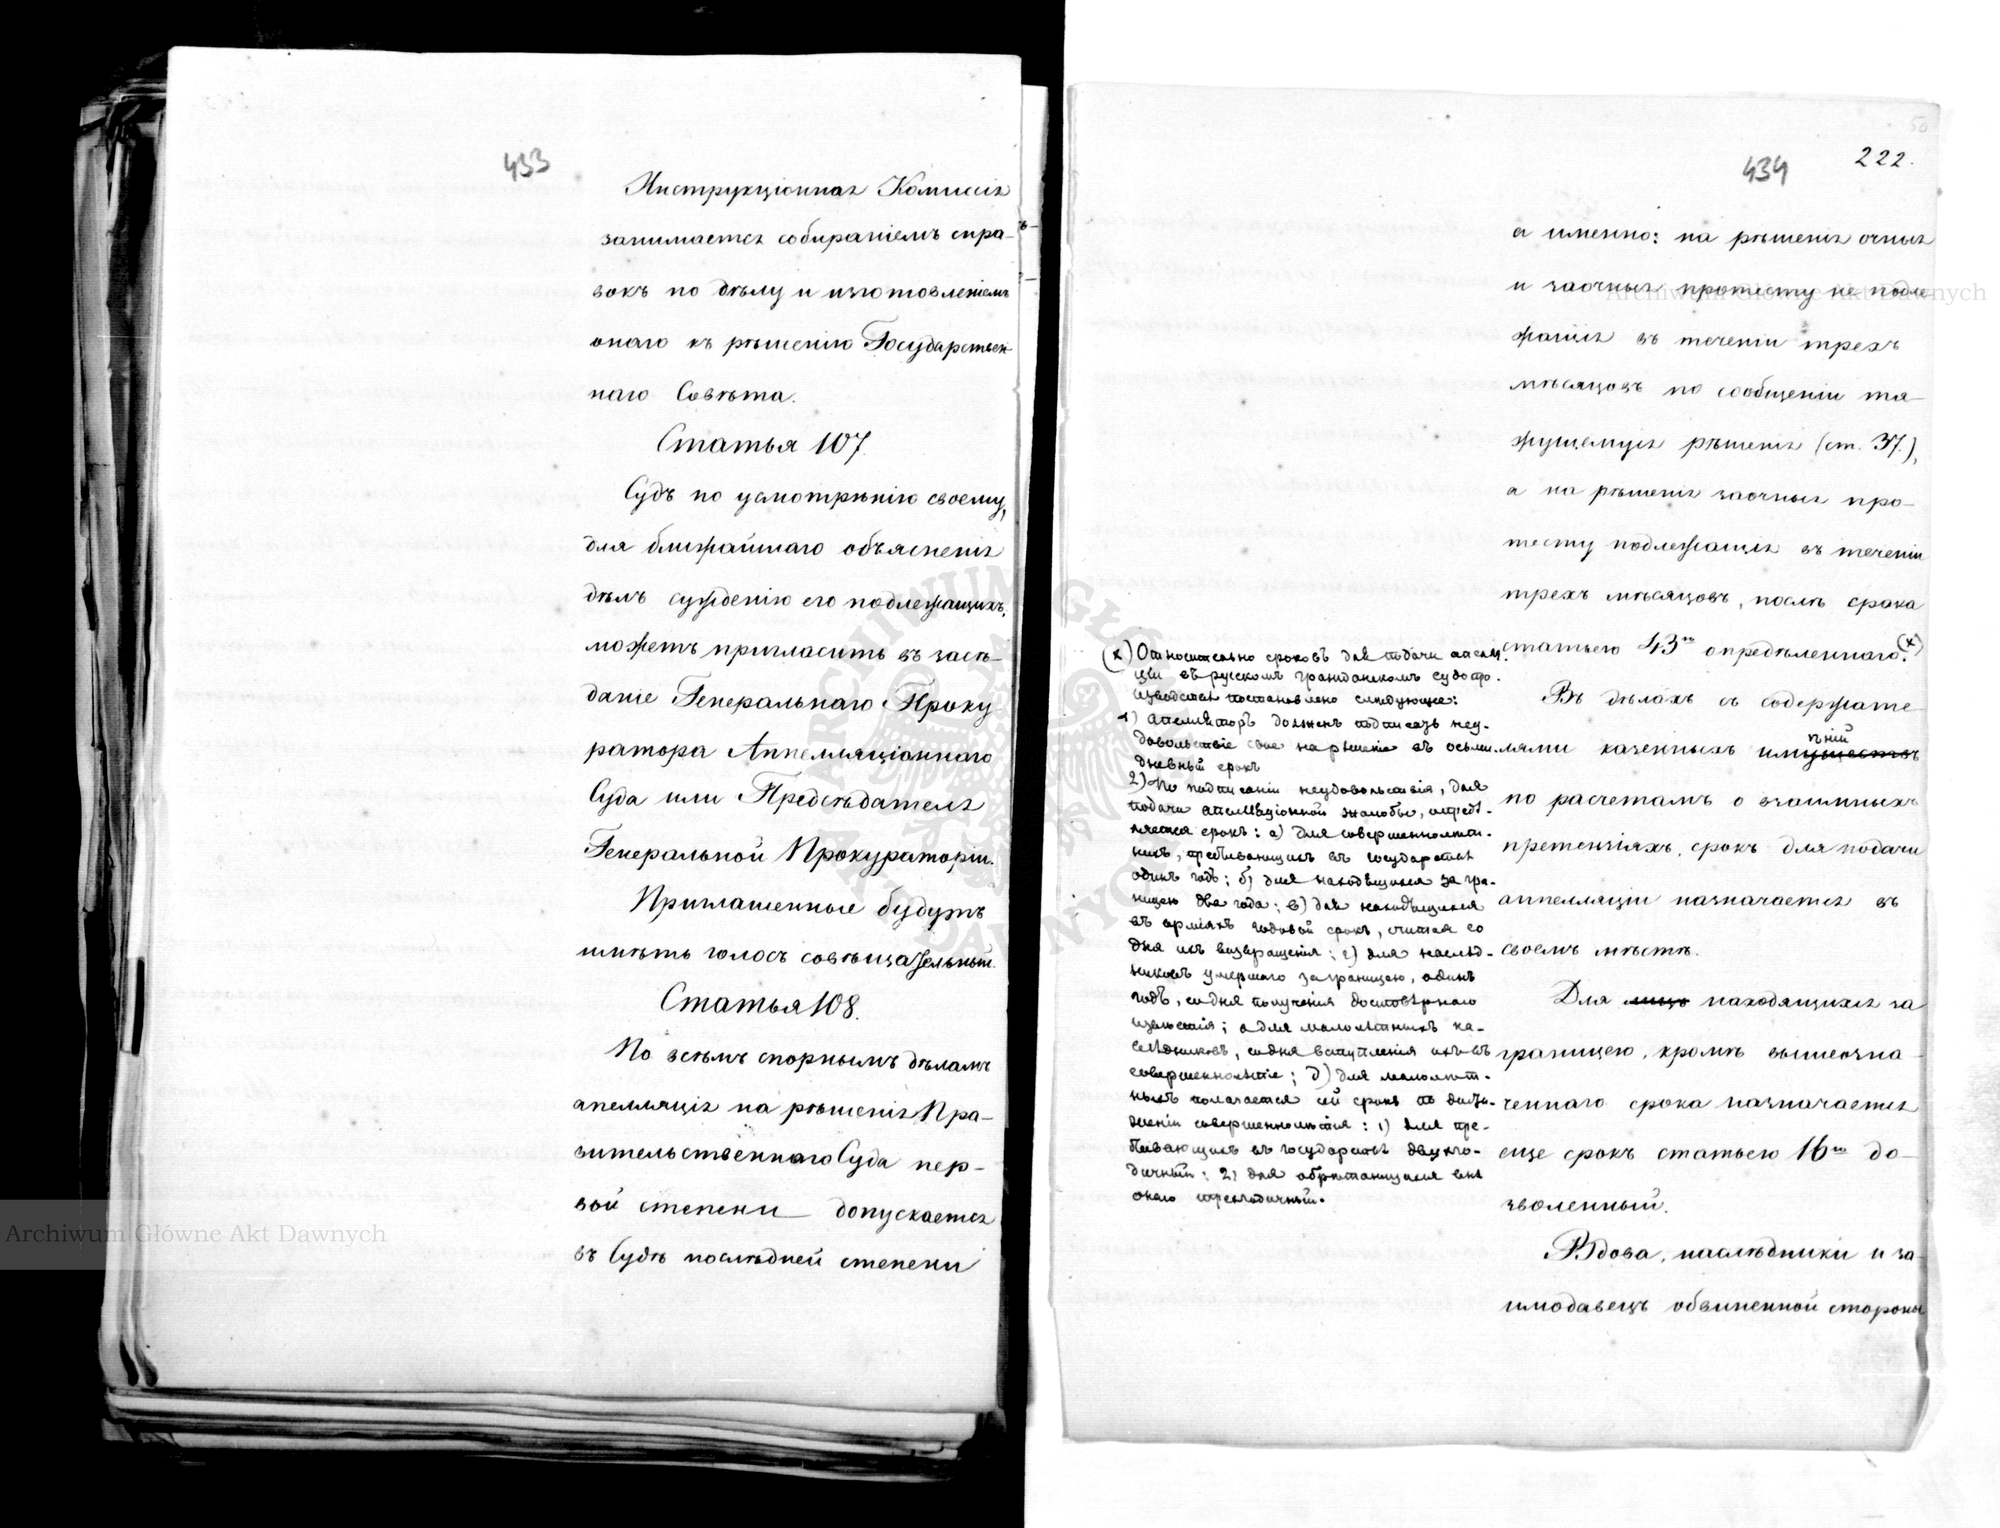 433
Инструкціонная Комиссія
занимается собираніемъ спра-
вокъ по дѣлу и изготовленіемъ
онаго къ рѣшенію Государствен-
наго Совѣта.
Статья 107.
Судъ по усмотрѣнію своему,
для ближайшаго объясненія
дѣлъ сужденію его подлежащихъ,
можетъ пригласить въ засѣ-
даніе Генеральнаго Проку-
ратора Аппелляціоннаго
Суда или Предсѣдателя
Генеральной Прокураторіи.
Приглашенные будутъ
имѣть голосъ совѣщательный.
Статья 108.
По всѣмъ спорнымъ дѣламъ
апелляція на рѣшенія Пра-
вительственнаго Суда пер-
вой степени допускается
въ Судъ послѣдней степени
50
434
222.
а именно: на рѣшенія очныя
и заочныя протесту не подле
жащія въ теченіи трехъ
мѣсяцовъ по сообщеніи тя-
жущемуся рѣшенія (ст. 37.),
а на рѣшенія заочныя про-
тесту подлежащія въ теченіи
трехъ мѣсяцовъ, послѣ срока
статьею 43ю опредѣленнаго. (x)
Въ дѣлахъ съ содержате
лями казенныхъ имуществъ ѣній
по расчетамъ о взаимныхъ
претензіяхъ, срокъ для подачи
аппелляціи назначается въ
своемъ мѣстѣ.
Для лицъ находящихся за
границею, кромѣ вышеозна-
ченнаго срока назначается
еще срокъ статьею 16ю до-
зволенный.
Вдова, наслѣдники и за-
имодавецъ обвиненной стороны
(x) Относительно сроковъ для подачи апелля-
ціи въ русскомъ гражданскомъ судопро-
изводствѣ постановлено слѣдующее:
1) Апелляторъ долженъ подписать неу-
довольствіе свое на рѣшеніе въ осьми-
дневный срокъ
2) По подписаніи неудовольствія, для
подачи апелляціонной жалобы, опредѣ-
ляется срокъ: а) для совершеннолѣт-
нихъ, пребывающихъ въ государствѣ
одинъ годъ; б) для находящихся за гра-
ницею два года; в) для находящихся
въ арміяхъ годовой срокъ, считая со
дня ихъ возвращенія; г) для наслѣд-
никовъ умершаго за границею, одинъ
годъ, со дня полученія достовѣрнаго
извѣстія; а для малолѣтныхъ на-
слѣдниковъ, со дня вступленія ихъ въ
совершеннолѣтіе; д) для малолѣт-
ныхъ полагается сей срокъ по дости-
женіи совершеннолѣтія: 1) для пре-
бывающихъ въ государствѣ двухго-
дичный; 2) для обрѣтающихся внѣ
онаго трехгодичный.
Archiwum Główne Akt Dawnych
Archiwum Główne Akt Dawnych